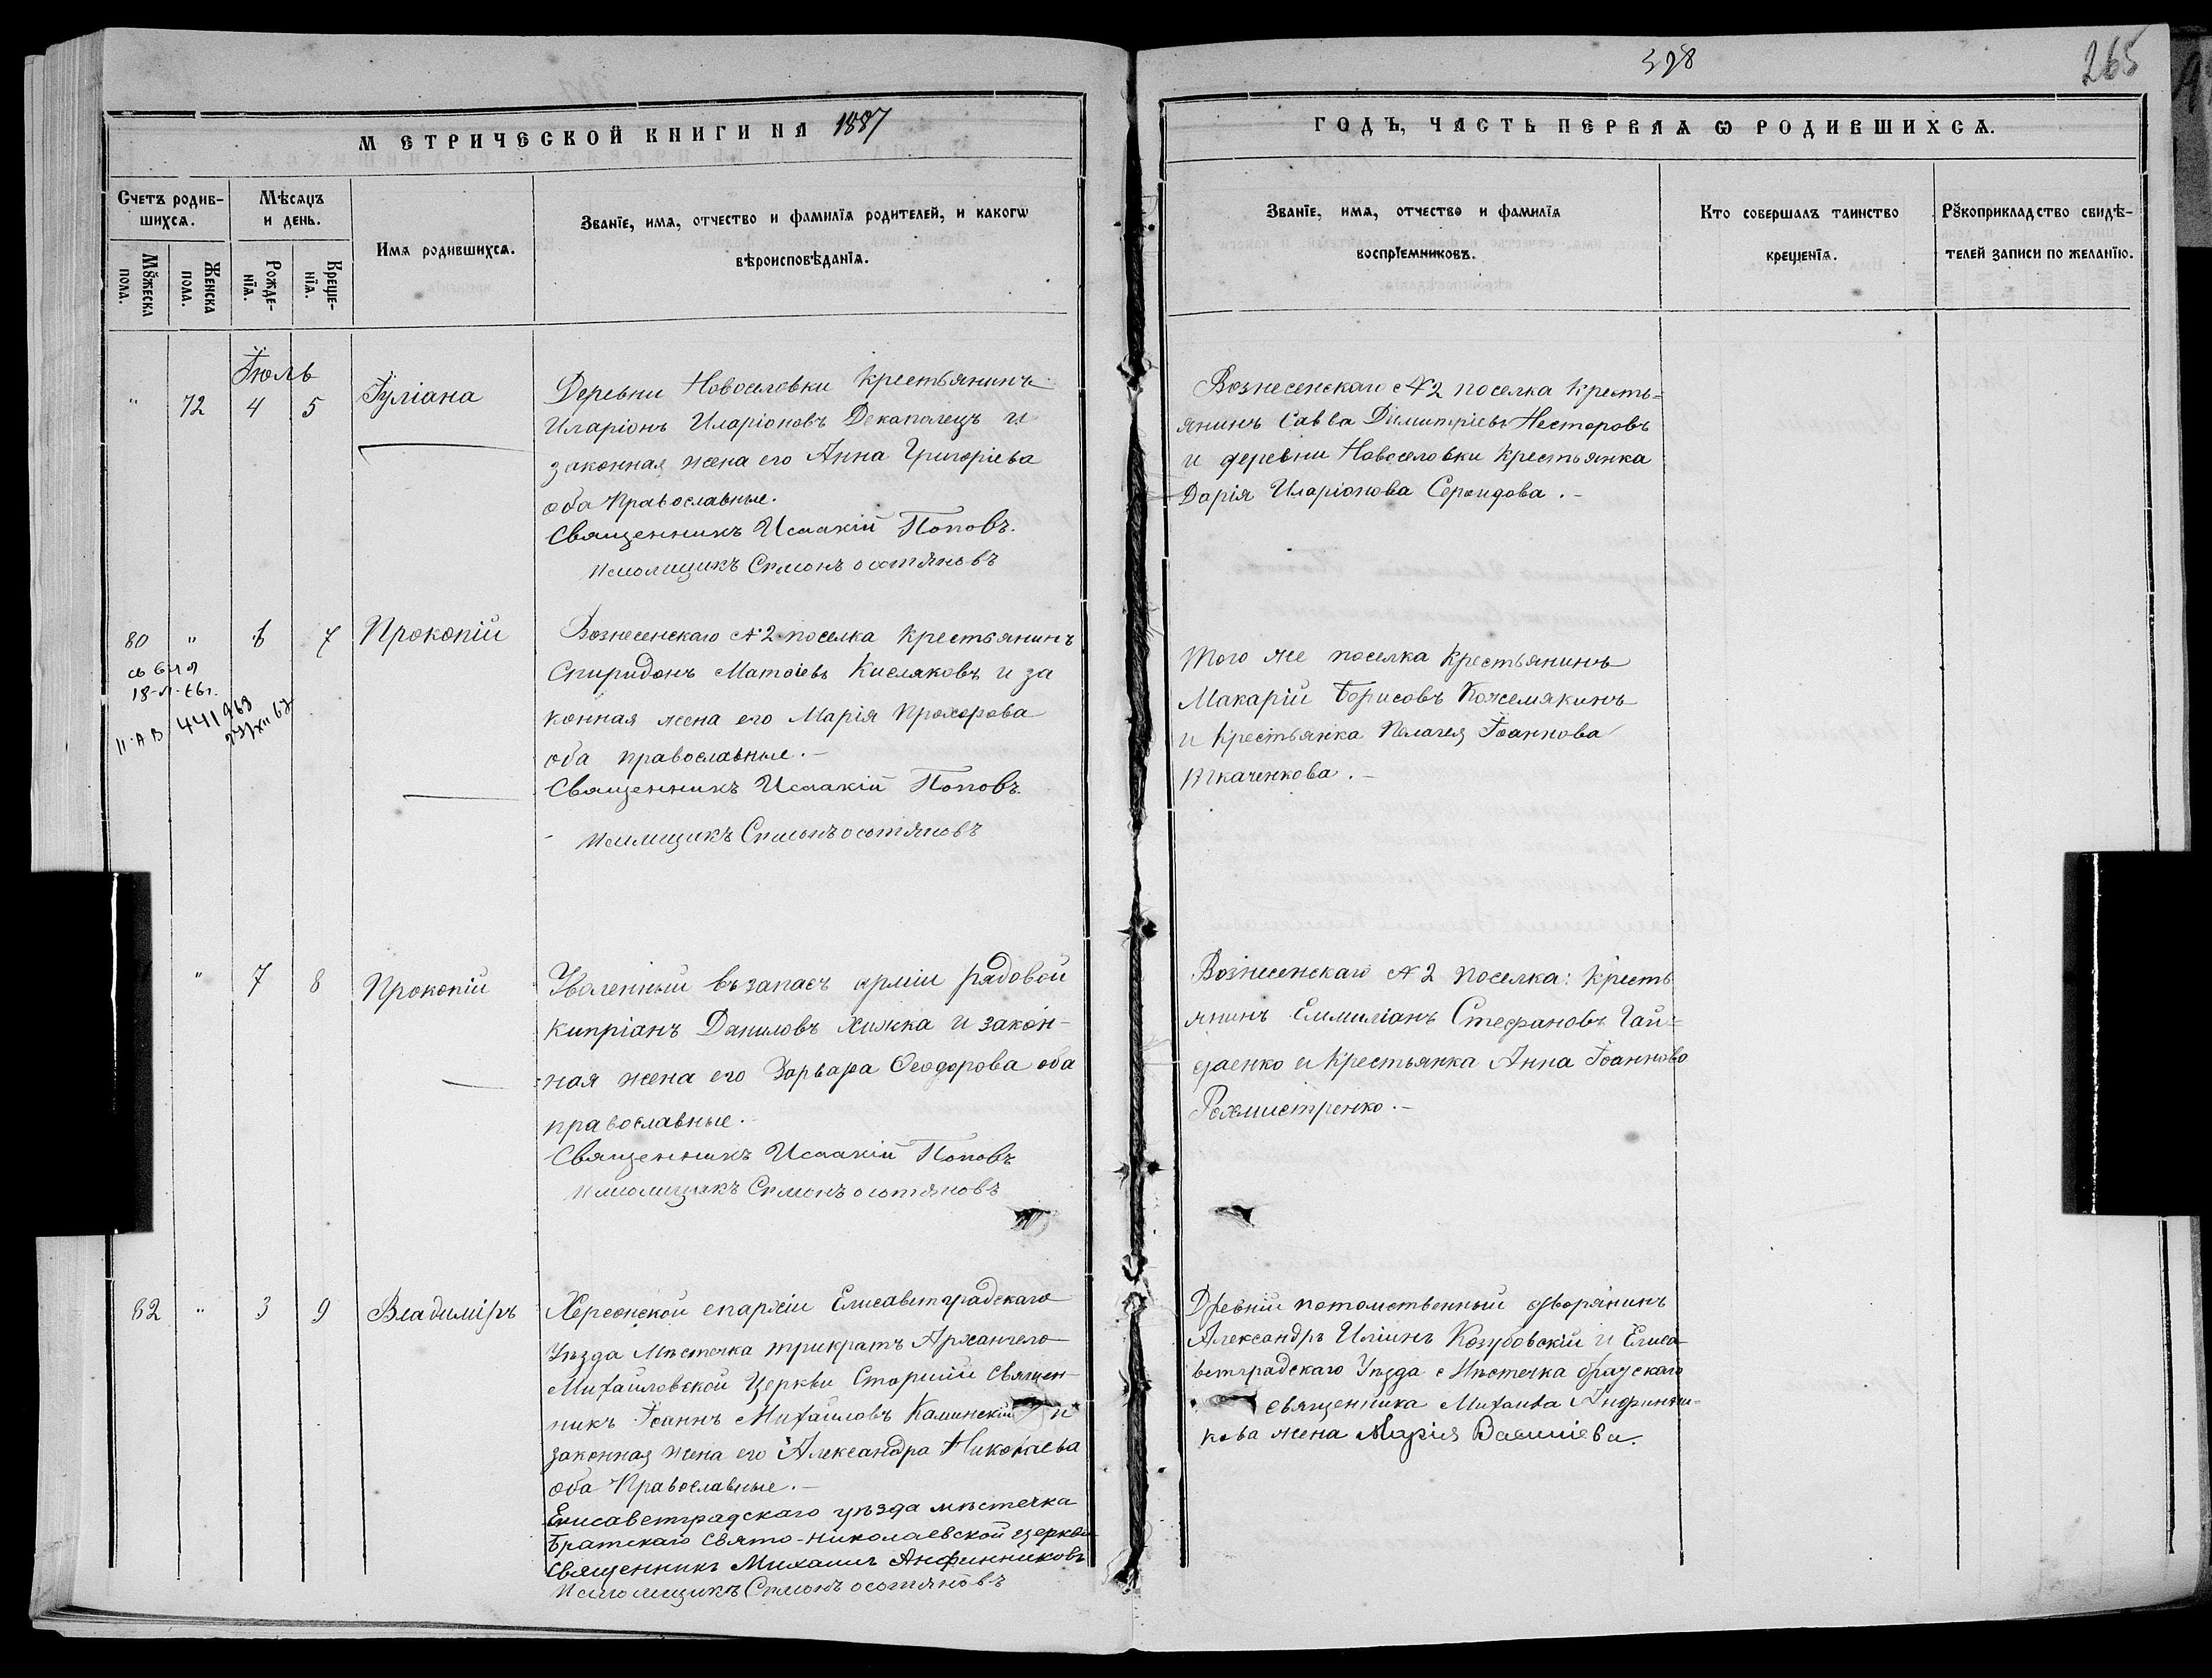 398
265
МЕТРИЧЕСКОЙ КНИГИ НА 1887
ГОДЪ, ЧАСТЬ ПЕРВАѦ Ѡ РОДИВШИХСѦ.
Счетъ родив-
шихсѧ.
Мѣсяцъ
и день.
Имѧ родившихсѧ.
Званїе, имѧ, отчество и фамилїѧ родителей, и какогѡ
вѣроисповѣданїѧ.
Мꙋжеска
пола.
Женска
пола.
Рожде-
нїѧ.
Креще-
нїѧ.
Званїе, имѧ, отчество и фамилїѧ
воспрїемниковъ.
Кто совершалъ таинство
крещенїѧ.
Рꙋкоприкладство свидѣ-
телей записи по желанїю.
Іюль
" 72 4 5 Іуліана
Деревни Новоселовки крестьянинъ
Иларіонъ Иларіоновъ Декаполецъ и
законная жена его Анна Григоріева
оба Православные.
Священникъ Исаакій Поповъ.
Псаломщикъ
Вознесенскаго №2 поселка кресть=
янинъ Савва Димитріевъ Нестеровъ
и деревни Новоселовки крестьянка
Дарія Иларіонова .-
80 " 6 7 Прокопій
18-
II-АВ 441963
Вознесенскаго №2 поселка крестьянинъ
Спиридонъ Матѳіевъ Кисляковъ и за
конная жена его Марія Прохорова
оба православные.-
Священникъ Исаакій Поповъ.
Псаломщикъ
Того же поселка крестьянинъ
Макарій Борисовъ Кожемякинъ
и крестьянка Пелагея Іоаннова
Ткаченкова.-
" 7 8 Прокопій
Уволенный въ запасъ арміи рядовой
Кипріанъ Даниловъ Хижка и закон-
ная жена его Варвара Ѳеодорова оба
православные.-
Священникъ Исаакій Поповъ
Псаломщикъ
Вознесенскаго №2 поселка: кресть
янинъ Емиліанъ Стефановъ Гай=
даенко и крестьянка Анна Іоаннова
Рохмистренко.-
82 " 3 9 Владиміръ
Херсонской епархіи Елисаветградскаго
Уѣзда Мѣстечка трикратъ Архангело
Михайловской Церкви Старшій Священ-
никъ Іоаннъ Михайловъ Каминскій и
законная жена его Александра Николаева
оба Православные.-
Елисаветградскаго уѣзда мѣстечка
Братскаго Свято-Николаевской церкви
Священникъ Михаилъ Анфинниковъ
Псаломщикъ
Древній потомственный дворянинъ
Александръ Иліинъ Козубовскій и Елиса
ветградскаго Уѣзда Мѣстечка братскаго
священника Михаила Анфинни-
кова жена Марія Василіева.